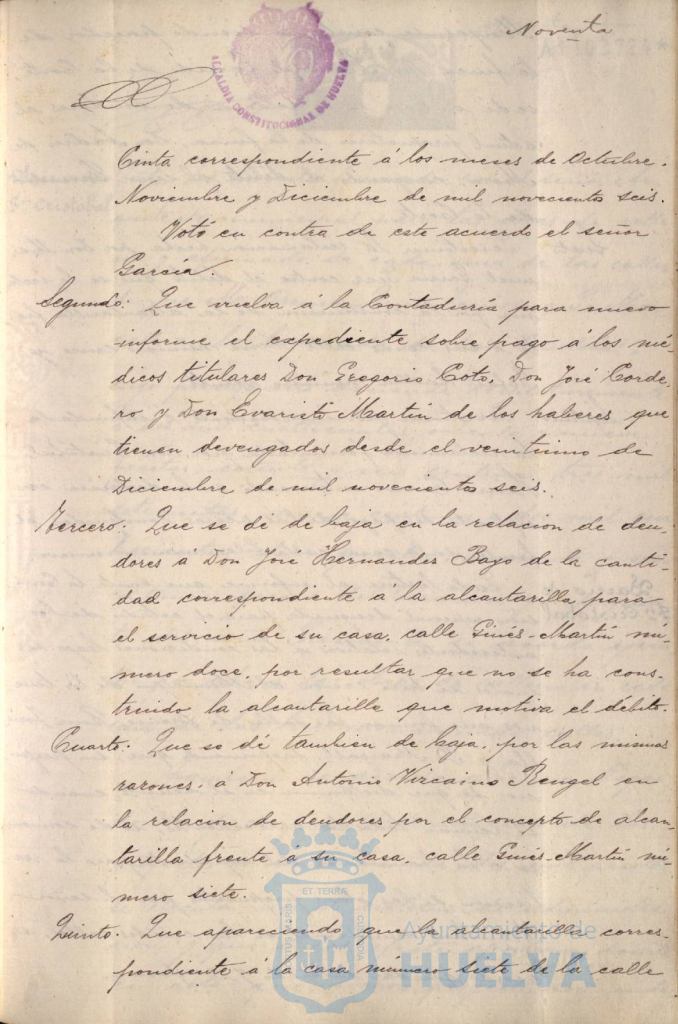 Noventa
ALCALDIA CONSTITUCIONAL DE HUELVA
Cinta correspondiente á los meses de Octubre.
Noviembre y Diciembre de mil novecientos seis.
Votó en contra de este acuerdo el señor
García.
Segundo: Que vuelva á la Contaduría para nuevo
informe el expediente sobre pago á los mé-
dicos titulares Don Gregorio Coto, Don José Corde-
ro y Don Evaristo Martin de los haberes que
tienen devengados desde el veintiuno de
Diciembre de mil novecientos seis.
Tercero: Que se dé de baja en la relacion de deu-
dores á Don José Hernandes Bayo de la canti-
dad correspondiente á la alcantarilla para
el servicio de su casa, calle Ginés-Martin nú-
mero doce, por resultar que no se ha cons-
truido la alcantarilla que motiva el débito.
Cuarto. Que se dé tambien de baja, por las mismas
razones, á Don Antonio Vizcaino Rengel en
la relacion de deudores por el concepto de alcan-
tarilla frente á su casa, calle Ginés-Martin nú-
mero siete.
Quinto. Que apareciendo que la alcantarilla corres-
pondiente á la casa número siete de la calle
ET TERRA
Ayuntamiento de
HUELVA